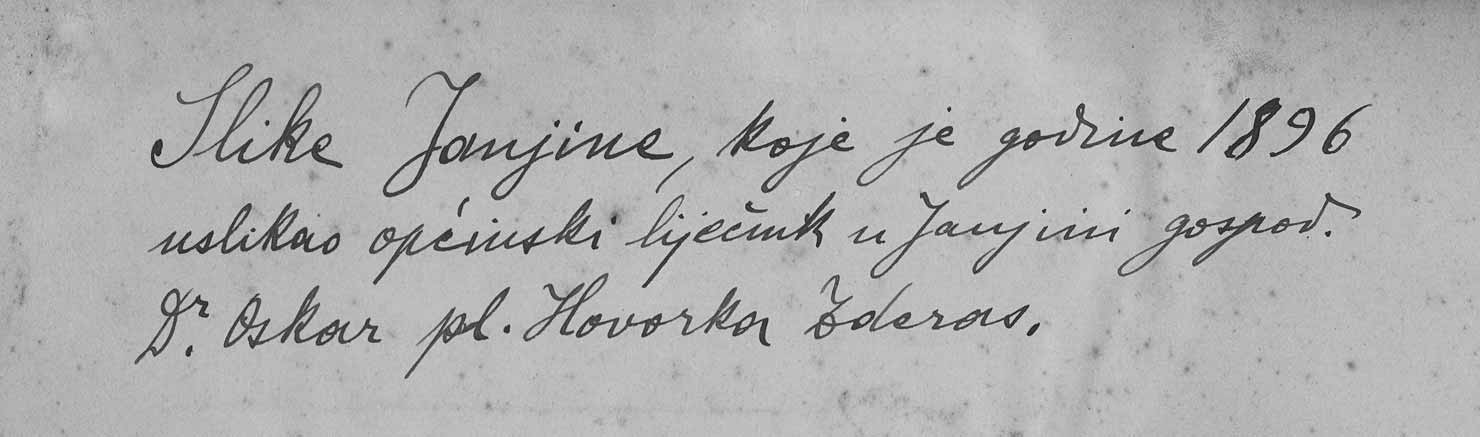 Slike Janjine, koje je godine 1896
uslikao općinski liječnik u Janjini gospod.
Dr. Oskar pl. Hovorka Zderas.